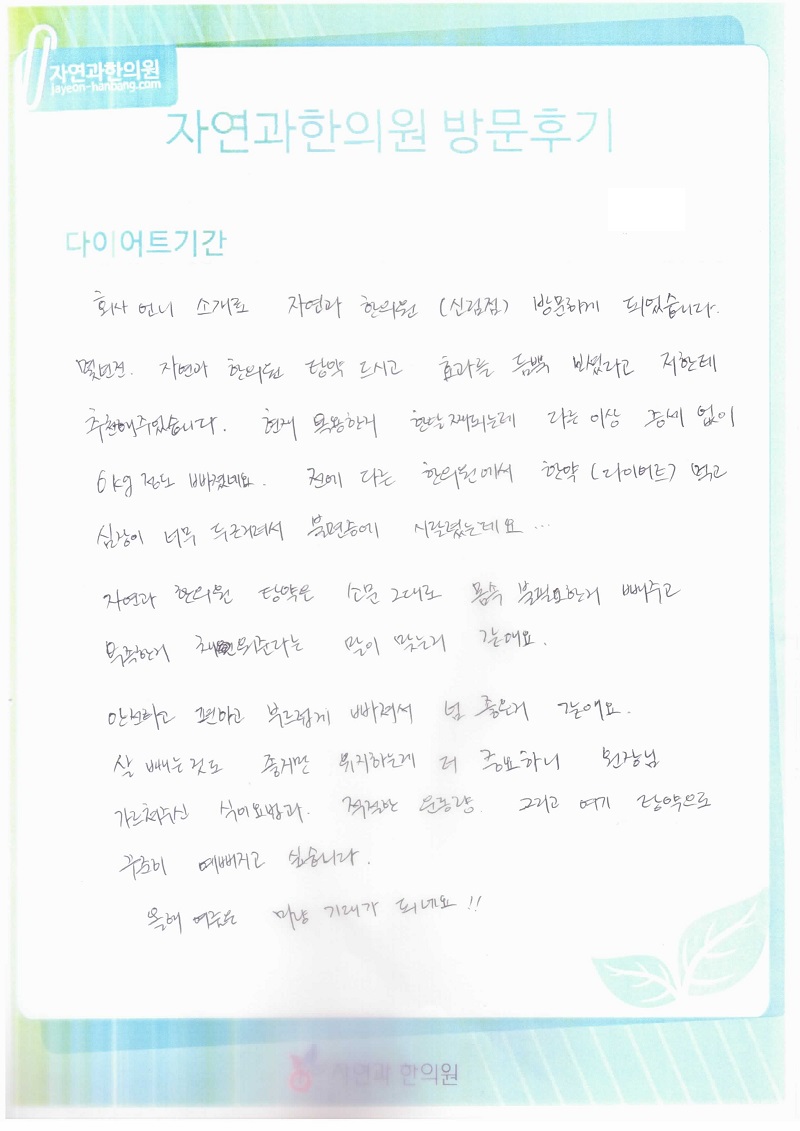 자연과한의원
jayeon-hanbang.com
자연과한의원 방문후기
다이어트기간
회사 언니 소개로 자연과 한의원 (신림점) 방문하게 되었습니다.
몇년전. 자연과 한의원 탕약 드시고 효과를 듬뿍 보셨다고 저한테
추천해주었습니다. 현재 복용한지 한달째되는데 다른 이상 증세 없이
6kg 정도 빠졌네요. 전에 다른 한의원에서 한약 (다이어트) 먹고
심장이 너무 두근거려서 불면증에 시달렸는데요 ...
자연과 한의원 탕약은 소문 그대로 몸속 불필요한거 빼주고
부족한거 채워준다는 말이 맞는거 같애요.
안전하고 편하고 부드럽게 빠져서 넘 좋은거 같애요.
살 빼는것도 좋지만 유지하는게 더 중요하니 원장님
가르쳐주신 식이요법과. 적절한 운동량. 그리고 여기 탕약으로
꾸준히 예뻐지고 싶습니다.
올해 여름은 마냥 기대가 되네요 !!
자연과 한의원